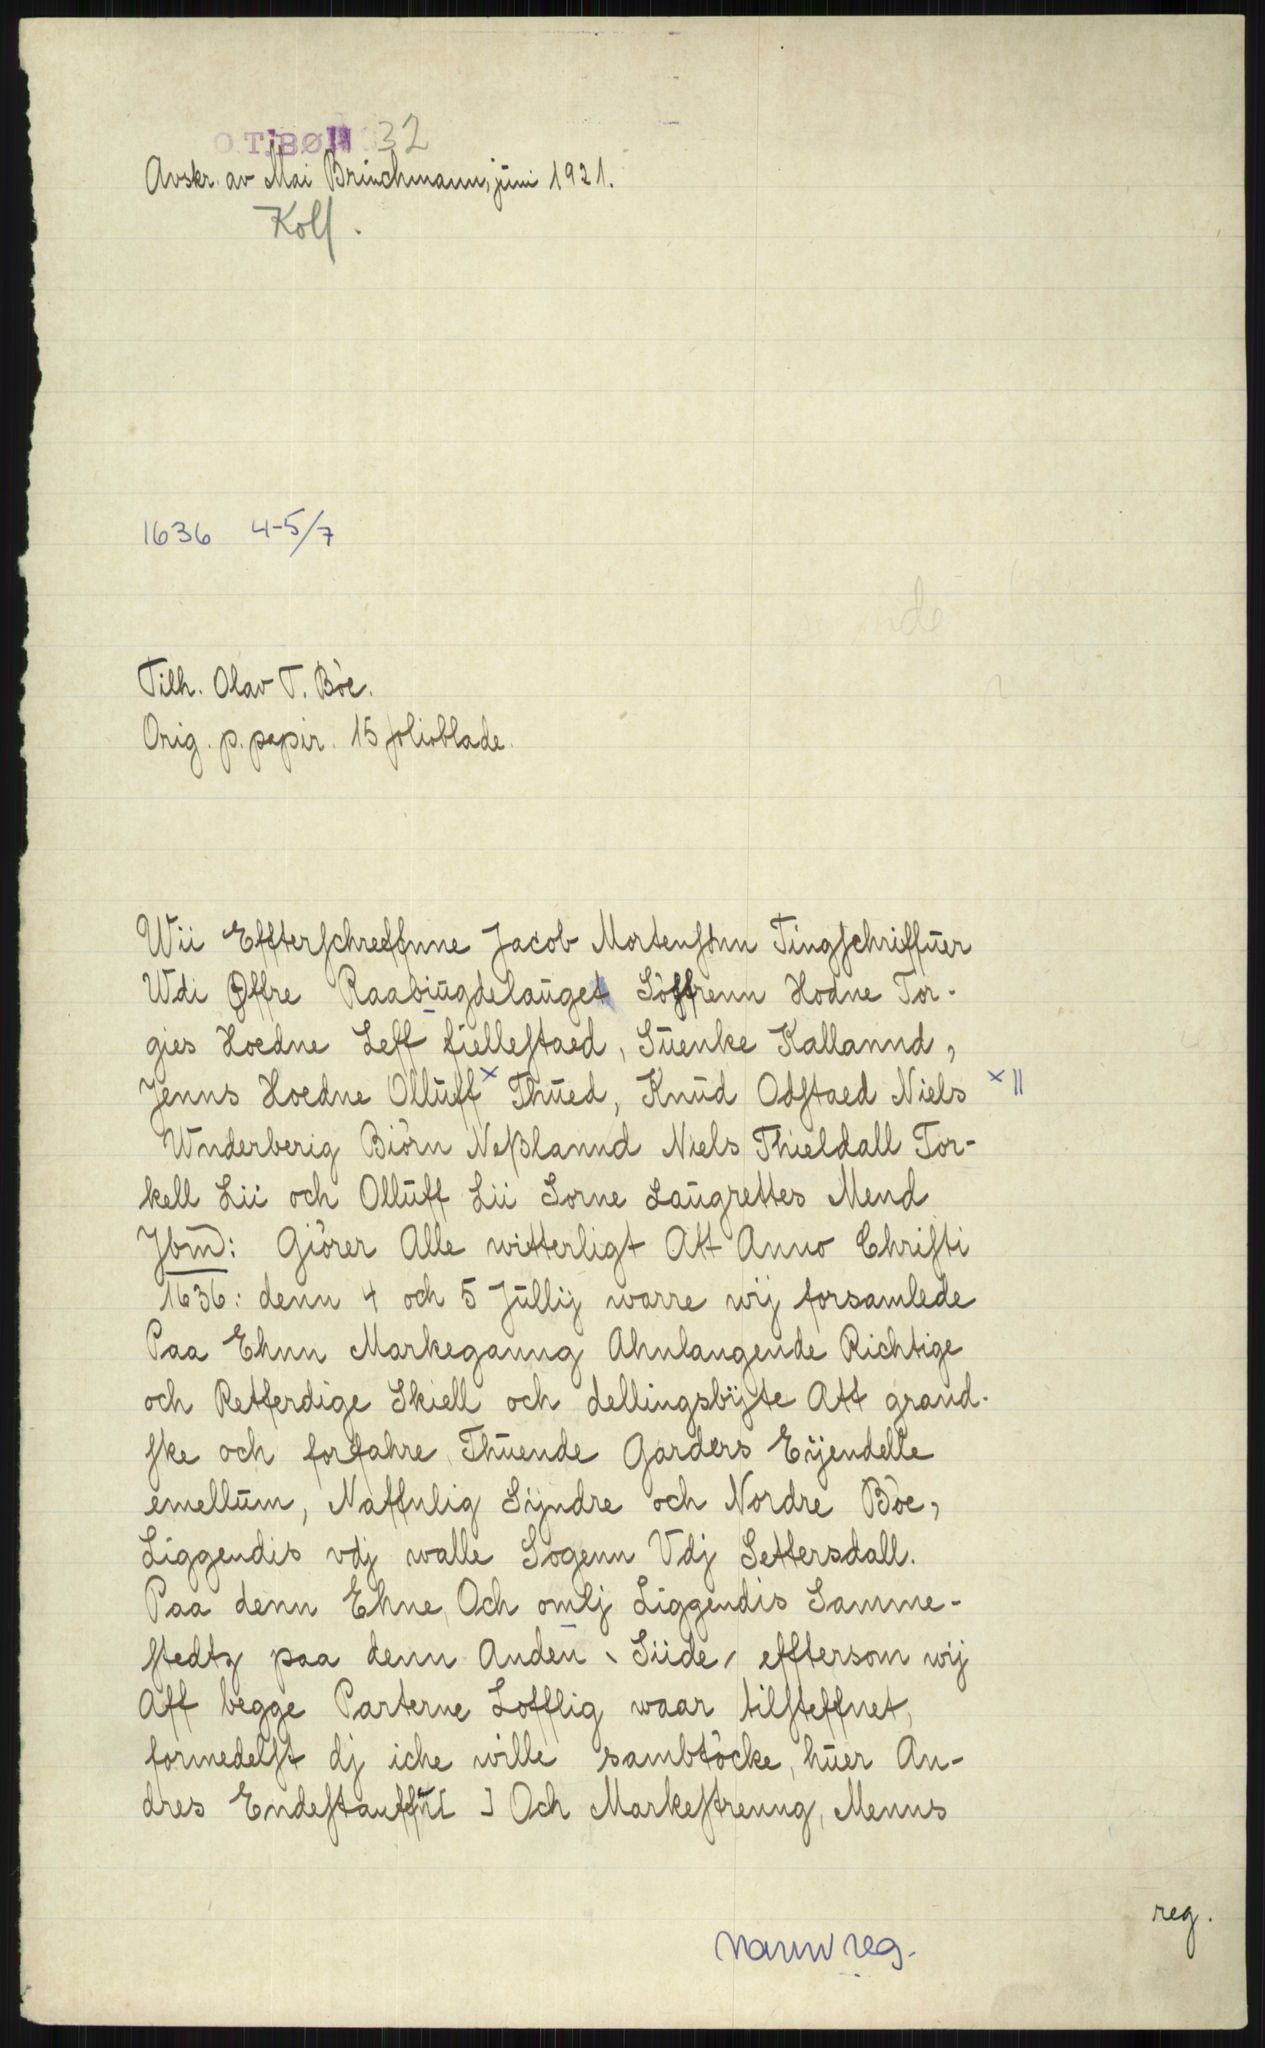 O.T.BØ 32
Avskr. av Mai Brinchmann, juni 1921.
Koll.
1636 4-5/7
Tilh. Olav T. Bøe.
Orig. p. papir. 15 folioblade.
Wii Effterschreffnne Jacob Mortensønn Tingschriffuer
Wdi Øffre Raabiugdelauget Söffrenn Hodne Tor-
gies Hoedne Leff fiellestaed, Suenke Kallannd,
Jenns Hoedne Olluff x Thued, Knud Odstaed Niels x ||
Wnderberig Biörn Neßlannd Niels Thieldall Tor-
kell Lii och Olluff Lii Sorne Laugrettes Mend
Jbm̄: Giörer Alle witterligt Att Anno Christi
1636: denn 4 och 5 Jullij warre wij forsamlede
Paa Ehnn Markeganng Ahnlangende Richtige
och Retferdige Skiell och dellingsbÿte Att grand-
ske och forfahre Thuende Garders Eÿendelle
emellum, Naffnlig Sÿndre och Nordre Böe,
Liggendis vdj walle Sogenn Vdj Settersdall.
Paa denn Ehne Och omlj Liggendis Samme-
stedtz paa denn Anden Siide, efftersom wij
Aff begge Parterne Lofflig waar tilsteffnet,
formedelst dj iche wille sambtöcke, huer An-
dres Endestauffu[ ] Och Markestrenng, Menns
reg.
navnreg.